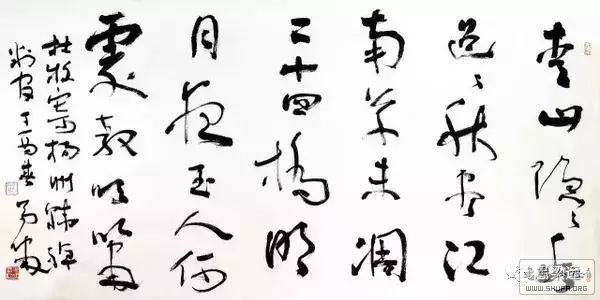 青山隐〻水
迢〻秋尽江
南草未凋
二十四橋明
月夜玉人何
處教吹箫
杜牧寄揚州韩绰
判官丁酉春
WWW.SHUFA.ORG